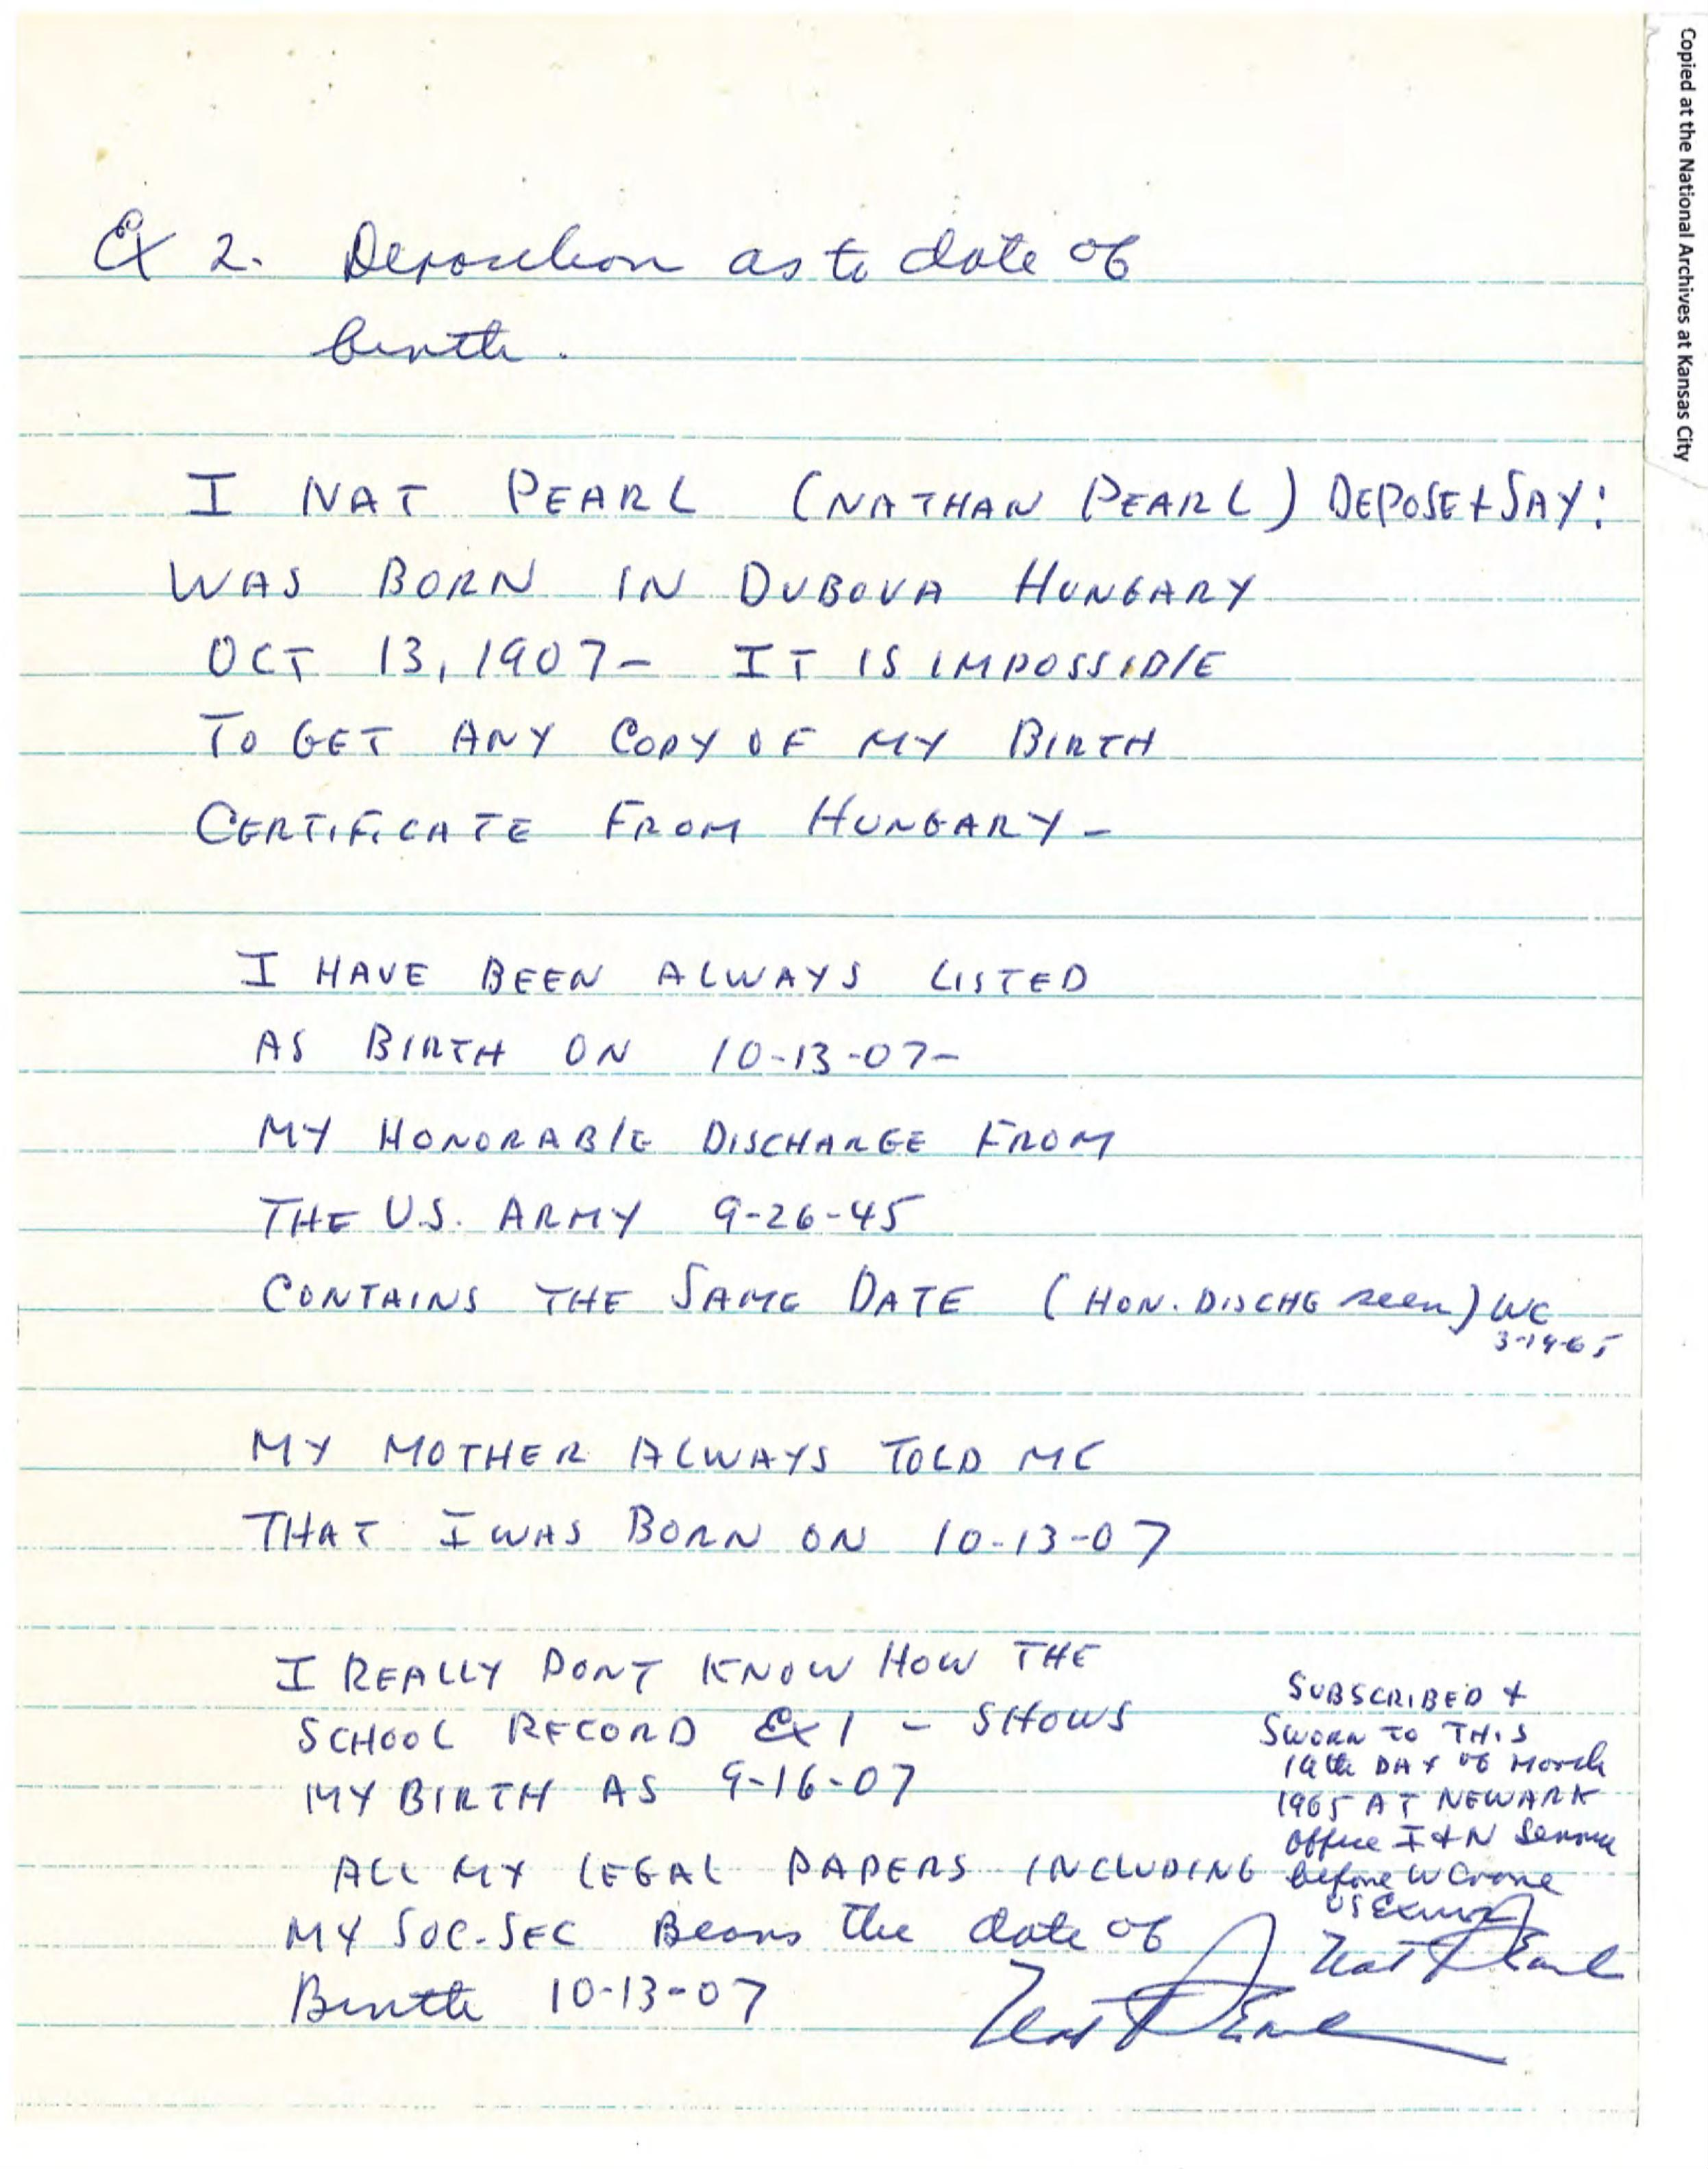 Copied at the National Archives at Kansas City
Ex 2. Deposition as to date of
birth.
I NAT PEARL (NATHAN PEARL) DEPOSE + SAY:
WAS BORN IN DUBOVA HUNGARY
OCT 13, 1907- IT IS IMPOSSIBLE
TO GET ANY COPY OF MY BIRTH
CERTIFICATE FROM HUNGARY-
I HAVE BEEN ALWAYS LISTED
AS BIRTH ON 10-13-07-
MY HONORABLE DISCHARGE FROM
THE U.S. ARMY 9-26-45
CONTAINS THE SAME DATE (HON. DISCHG seen) WC
3-19-65
MY MOTHER ALWAYS TOLD ME
THAT I WAS BORN ON 10-13-07
I REALLY DONT KNOW HOW THE
SCHOOL RECORD Ex 1 - SHOWS
MY BIRTH AS 9-16-07
ALL MY LEGAL PAPERS INCLUDING
MY SOC-SEC Bears the date of
Birth 10-13-07
SUBSCRIBED +
SWORN TO THIS
19th DAY of March
1965 AT NEWARK
office I + N Service
before W Crone
US Exmr
Nat Pearl
Nat Pearl